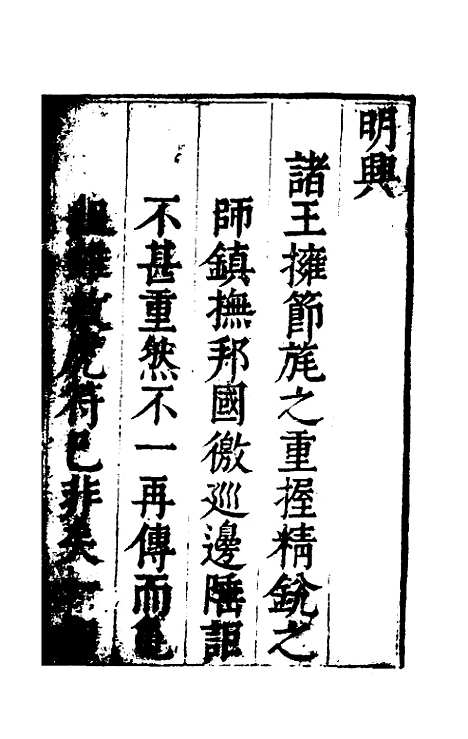 明興
諸王擁節旄之重握精銳之
師鎮撫邦國徼巡邊陲詎
不甚重然不一再傳而
虎符已非矣